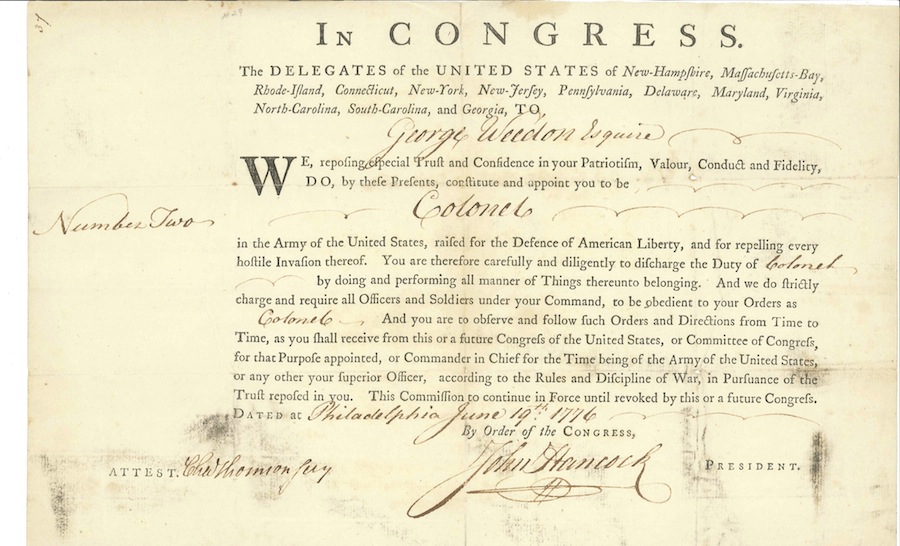 37
In CONGRESS.
The DELEGATES of the UNITED STATES of New-Hampſhire, Maſſachuſetts-Bay,
Rhode-Iſland, Connecticut, New-York, New-Jerſey, Pennſylvania, Delaware, Maryland, Virginia,
North-Carolina, South-Carolina, and Georgia, TO
George Weedon Esquire
WE, repoſing eſpecial Truſt and Confidence in your Patriotiſm, Valour, Conduct and Fidelity,
DO, by theſe Preſents, conſtitute and appoint you to be
Colonel
Number Two
in the Army of the United States, raiſed for the Defence of American Liberty, and for repelling every
hoſtile Invaſion thereof. You are therefore carefully and diligently to diſcharge the Duty of Colonel
by doing and performing all manner of Things thereunto belonging. And we do ſtrictly
charge and require all Officers and Soldiers under your Command, to be obedient to your Orders as
Colonel And you are to obſerve and follow ſuch Orders and Directions from Time to
Time, as you ſhall receive from this or a future Congreſs of the United States, or Committee of Congreſs,
for that Purpoſe appointed, or Commander in Chief for the Time being of the Army of the United States,
or any other your ſuperior Officer, according to the Rules and Diſcipline of War, in Purſuance of the
Truſt repoſed in you. This Commiſſion to continue in Force until revoked by this or a future Congreſs.
DATED at Philadelphia June 19th 1776
By Order of the CONGRESS,
ATTEST. Chas Thomson Secy
John Hancock PRESIDENT.